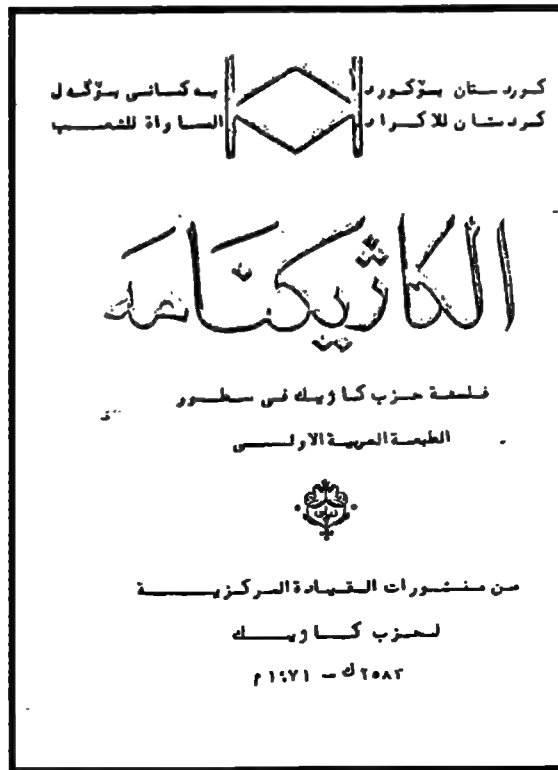 كوردستان بۆكورد يەكسانى بۆگەل
كردستان للاكراد المساواة للشعب
الكاژيكنامه
فلسفة حزب كاژيك فى سطور
الطبعة العربية الاولى
من منشورات القيادة المركزية
لحزب كاژيك
٢٥٨٣ك - ١٩٧١ م